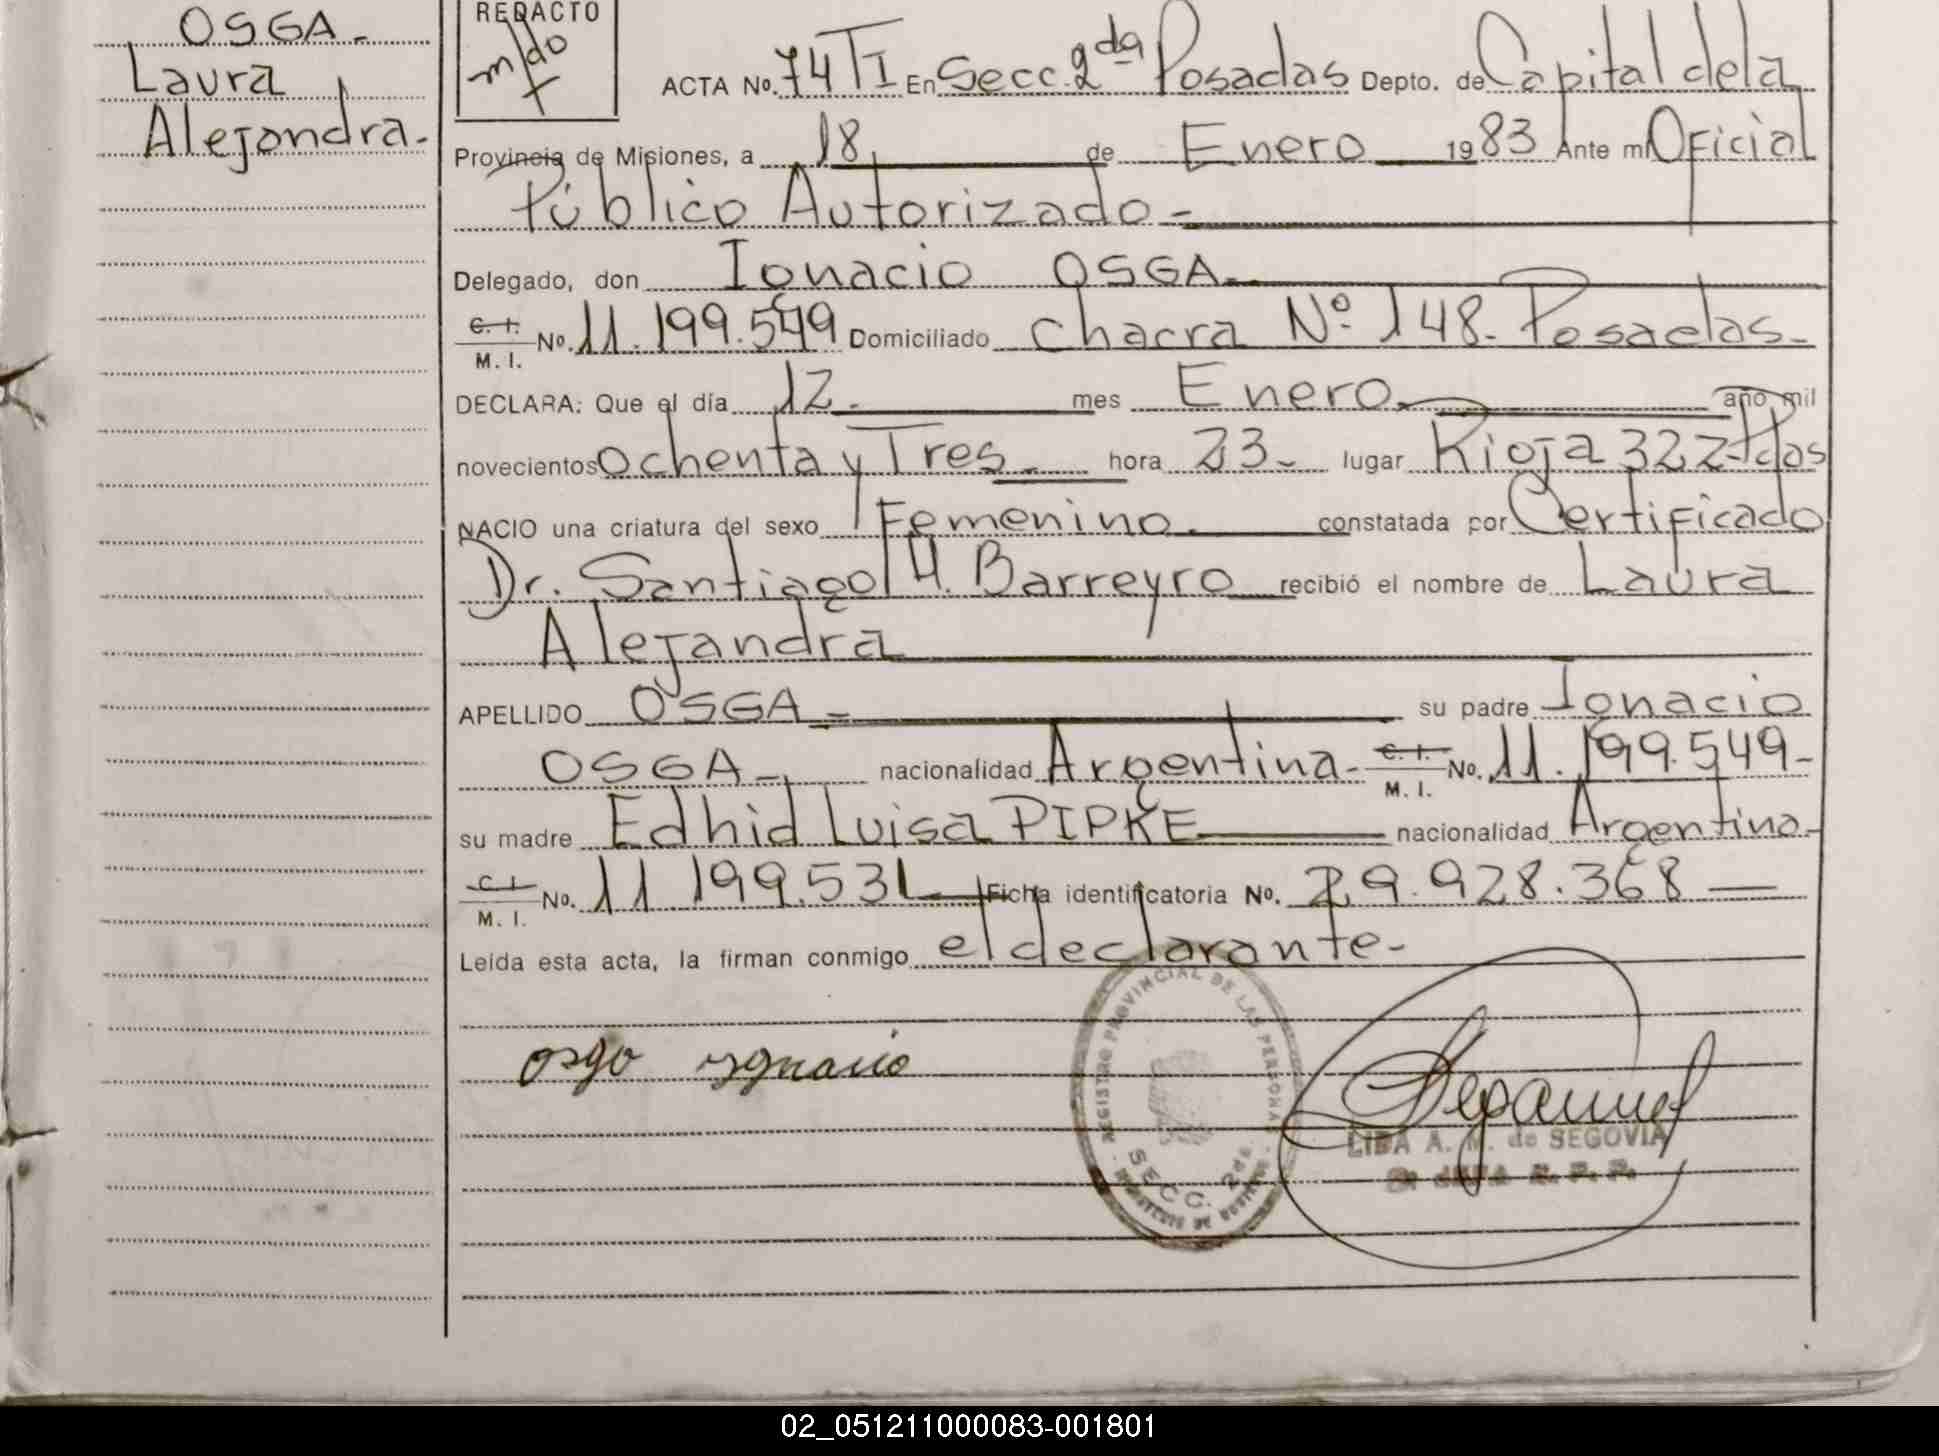 OSGA-
Laura
Alejandra-
REDACTO
ACTA No. 74 TI En Secc. 2da Posadas Depto. de Capital de la
Provincia de Misiones, a 18 de Enero 1983 Ante mi Oficial
Público Autorizado-
Delegado, don Ignacio OSGA-
C. I. / M. I. No. 11.199.549 Domiciliado Chacra Nº 148- Posadas-
DECLARA: Que el día 12- mes Enero- año mil
novecientos Ochenta y Tres- hora 23- lugar Rioja 322-Pdas
NACIO una criatura del sexo Femenino- constatada por Certificado
Dr. Santiago H. Barreyro recibió el nombre de Laura
Alejandra
APELLIDO OSGA- su padre Ignacio
OSGA- nacionalidad Argentina- C. I. / M. I. No. 11.199.549-
su madre Edhid Luisa PIPKE nacionalidad Argentina-
C. I. / M. I. No. 11.199.531 Ficha identificatoria No. 29.928.368
Leída esta acta, la firman conmigo el declarante-
REGISTRO PROVINCIAL DE LAS PERSONAS
SECC. 2da.
osga ygnacio
LIDA A. M. de SEGOVIA
02_051211000083-001801